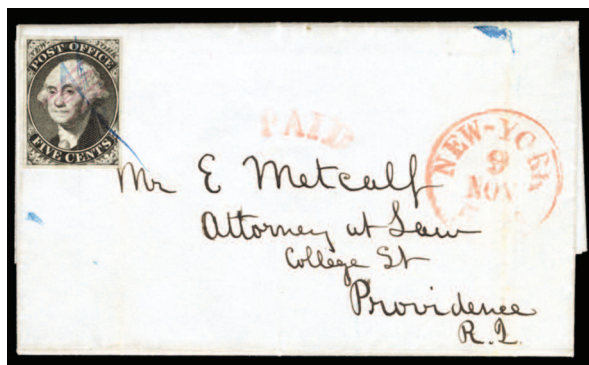 POST OFFICE
FIVE CENTS
PAID
NEW-YORK
9
NOV
Mr E Metcalf
Attorney at Law
College St
Providence
R.I.